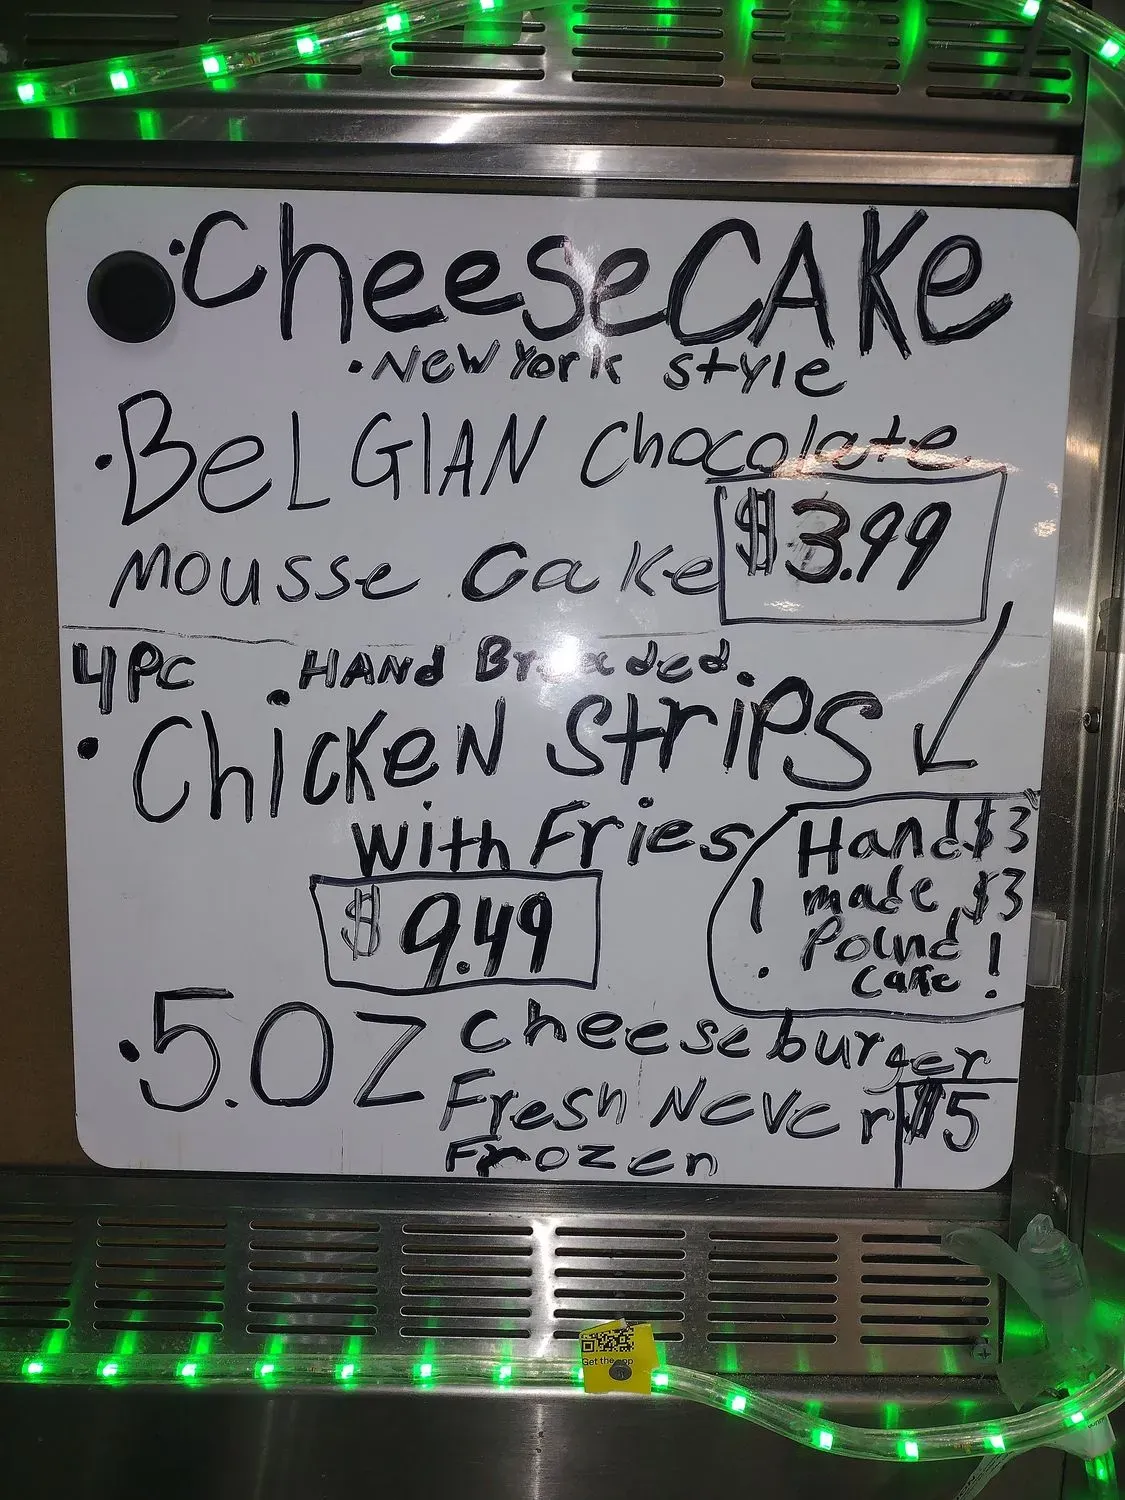 ·CheeseCAKe
·New York style
·BeLGIAN Chocolate
$3.99
mousse Cake
4PC ·HAND Breaded·
·ChicKeN StriPS
with Fries
$9.49
Hand $3
! made $3
Pound !
Cake
·5.0Z Cheeseburger
Fresh Never $5
Frozen
Get the app